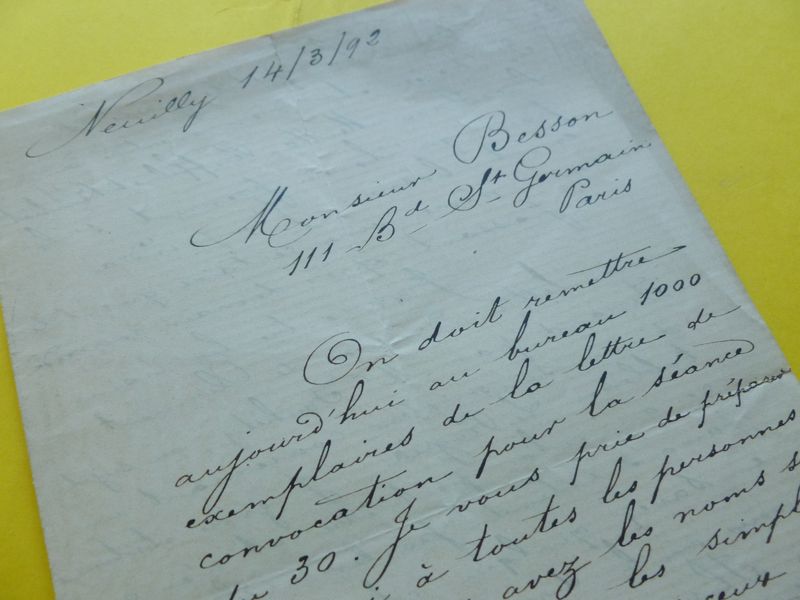 Neuilly 14/3/92
Monsieur Besson
111 Bd St Germain
Paris
On doit remettre
aujourd'hui au bureau 1000
exemplaires de la lettre de
convocation pour la séance
du 30. Je vous prie de préparer
à toutes les personnes
avez les noms
les